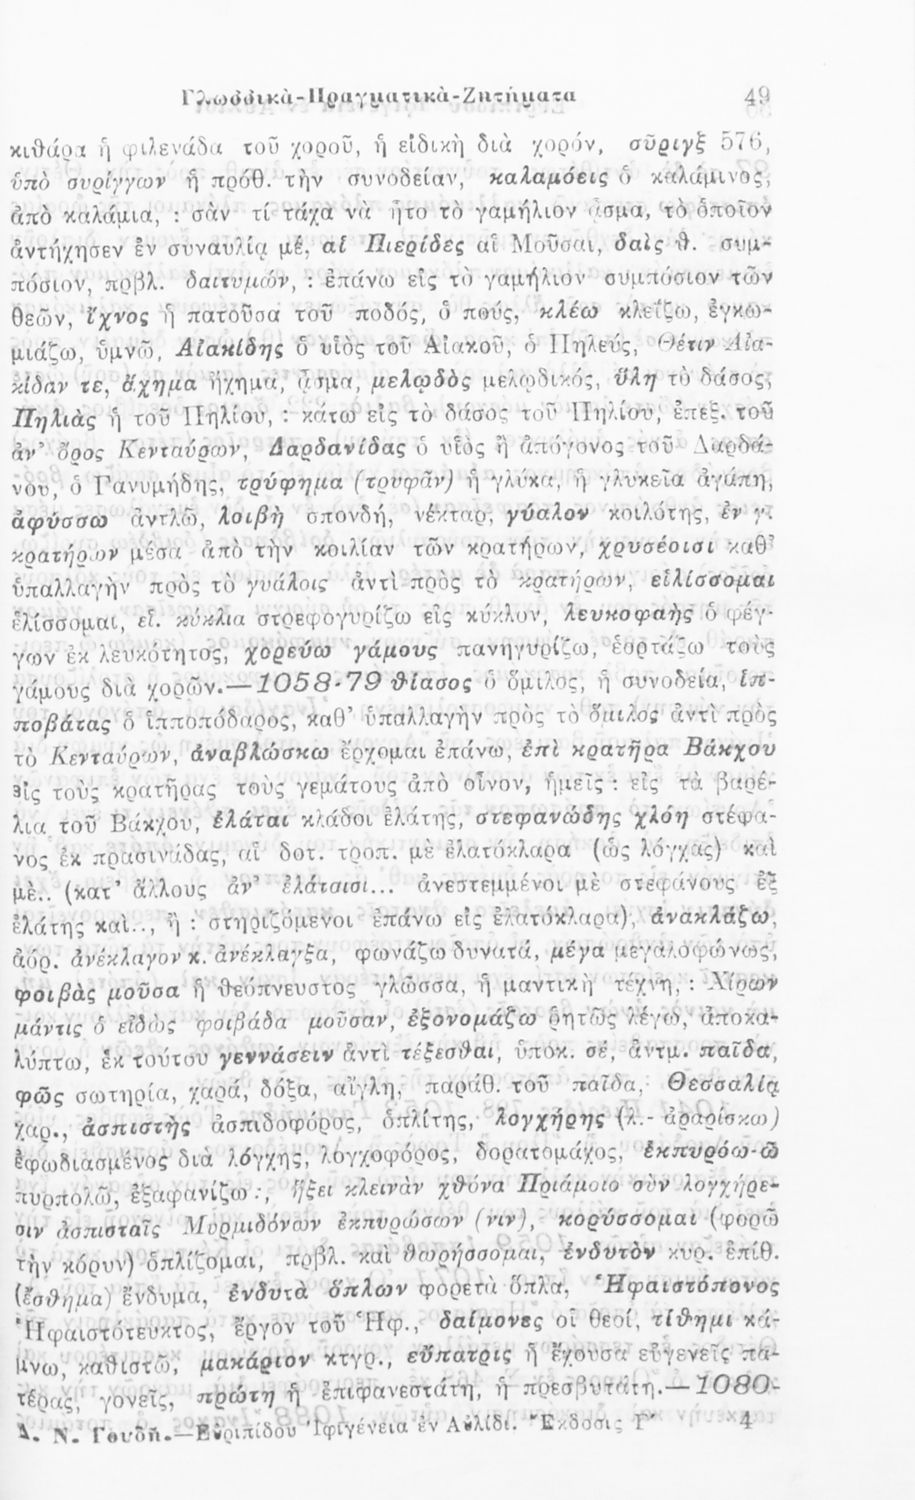 Γλωσσικὰ-Πραγματικὰ-Ζητήματα 49
κιθάρα ἡ φιλενάδα τοῦ χοροῦ, ἡ εἰδικὴ διὰ χορόν, σῦριγξ 576,
ὑπὸ συρίγγων ἡ πρόθ. τὴν συνοδείαν, καλαμόεις ὁ καλάμινος,
ἀπὸ καλάμια, : σὰν τί τάχα νὰ ἦτο τὸ γαμήλιον ᾆσμα, τὸ ὁποῖον
ἀντήχησεν ἐν συναυλίᾳ μέ, αἱ Πιερίδες αἱ Μοῦσαι, δαὶς θ. συμ-
πόσιον, πρβλ. δαιτυμών, : ἐπάνω εἰς τὸ γαμήλιον συμπόσιον τῶν
θεῶν, ἴχνος ἡ πατοῦσα τοῦ ποδός, ὁ πούς, κλέω κλεΐζω, ἐγκω-
μιάζω, ὑμνῶ, Αἰακίδης ὁ υἱὸς τοῦ Αἰακοῦ, ὁ Πηλεύς, Θέτιν Αἰα-
κίδαν τε, ἄχημα ἤχημα, ᾆσμα, μελῳδὸς μελῳδικός, ὕλη τὸ δάσος,
Πηλιὰς ἡ τοῦ Πηλίου, : κάτω εἰς τὸ δάσος τοῦ Πηλίου, ἐπεξ. τοῦ
ἀν' ὄρος Κενταύρων, Δαρδανίδας ὁ υἱὸς ἢ ἀπόγονος τοῦ Δαρδά-
νου, ὁ Γανυμήδης, τρύφημα (τρυφᾶν) ἡ γλύκα, ἡ γλυκεῖα ἀγάπη,
ἀφύσσω ἀντλῶ, λοιβὴ σπονδή, νέκταρ, γύαλον κοιλότης, ἐν γ.
κρατήρων μέσα ἀπὸ τὴν κοιλίαν τῶν κρατήρων, χρυσέοισι καθ'
ὑπαλλαγὴν πρὸς τὸ γυάλοις ἀντὶ πρὸς τὸ κρατήρων, εἱλίσσομαι
ἑλίσσομαι, εἱ. κύκλια στρεφογυρίζω εἰς κύκλον, λευκοφαὴς ὁ φέγ-
γων ἐκ λευκότητος, χορεύω γάμους πανηγυρίζω, ἑορτάζω τοὺς
γάμους διὰ χορῶν.—1058-79 θίασος ὁ ὅμιλος, ἡ συνοδεία, ἱπ-
ποβάτας ὁ ἱπποπόδαρος, καθ' ὑπαλλαγὴν πρὸς τὸ ὅμιλος ἀντὶ πρὸς
τὸ Κενταύρων, ἀναβλώσκω ἔρχομαι ἐπάνω, ἐπὶ κρατῆρα Βάκχου
εἰς τοὺς κρατῆρας τοὺς γεμάτους ἀπὸ οἶνον, ἡμεῖς : εἰς τὰ βαρέ-
λια τοῦ Βάκχου, ἐλάται κλάδοι ἐλάτης, στεφανώδης χλόη στέφα-
νος ἐκ πρασινάδας, αἱ δοτ. τροπ. μὲ ἐλατόκλαρα (ὡς λόγχας) καὶ
μὲ.. (κατ' ἄλλους ἀν' ἐλάτσισι... ἀνεστεμμένοι μὲ στεφάνους ἐξ
ἐλάτης καὶ.., ἢ : στηριζόμενοι ἐπάνω εἰς ἐλατόκλαρα), ἀνακλάζω,
ἀόρ. ἀνέκλαγον κ. ἀνέκλαγξα, φωνάζω δυνατά, μέγα μεγαλοφώνως,
φοιβὰς μοῦσα ἡ θεόπνευστος γλῶσσα, ἡ μαντικὴ τέχνη, : Χίρων
μάντις ὁ εἰδὼς φοιβάδα μοῦσαν, ἐξονομάζω ῥητῶς λέγω, ἀποκα-
λύπτω, ἐκ τούτου γεννάσειν ἀντὶ τέξεσθαι, ὑποκ. σέ, ἀντμ. παῖδα,
φῶς σωτηρία, χαρά, δόξα, αἴγλη, παράθ. τοῦ παῖδα, Θεσσαλίᾳ
χαρ., ἀσπιστὴς ἀσπιδοφόρος, ὁπλίτης, λογχήρης (λ.- ἀραρίσκω)
ἐφωδιασμένος διὰ λόγχης, λογχοφόρος, δορατομάχος, ἐκπυρόω-ῶ
πυρπολῶ, ἐξαφανίζω :, ἥξει κλεινὰν χθόνα Πριάμοιο σὺν λογχήρε-
σιν ἀσπισταῖς Μυρμιδόνων ἐκπυρώσων (νιν), κορύσσομαι (φορῶ
τὴν κόρυν) ὁπλίζομαι, πρβλ. καὶ θωρήσσομαι, ἐνδυτὸν κυρ. ἐπίθ.
(ἔσθημα) ἔνδυμα, ἐνδυτὰ ὅπλων φορετὰ ὅπλα, Ἡφαιστόπονος
Ἡφαιστότευκτος, ἔργον τοῦ Ἡφ., δαίμονες οἱ θεοί, τίθημι κά-
μνω, καθιστῶ, μακάριον κτγρ., εὔπατρις ἡ ἔχουσα εὐγενεῖς πα-
τέρας, γονεῖς, πρώτη ἡ ἐπιφανεστάτη, ἡ πρεσβυτάτη.—1080-
Δ. Ν. Γουδῆ.—Εὐριπίδου Ἰφιγένεια ἐν Αὐλίδι. Ἔκδοσις Γ' 4